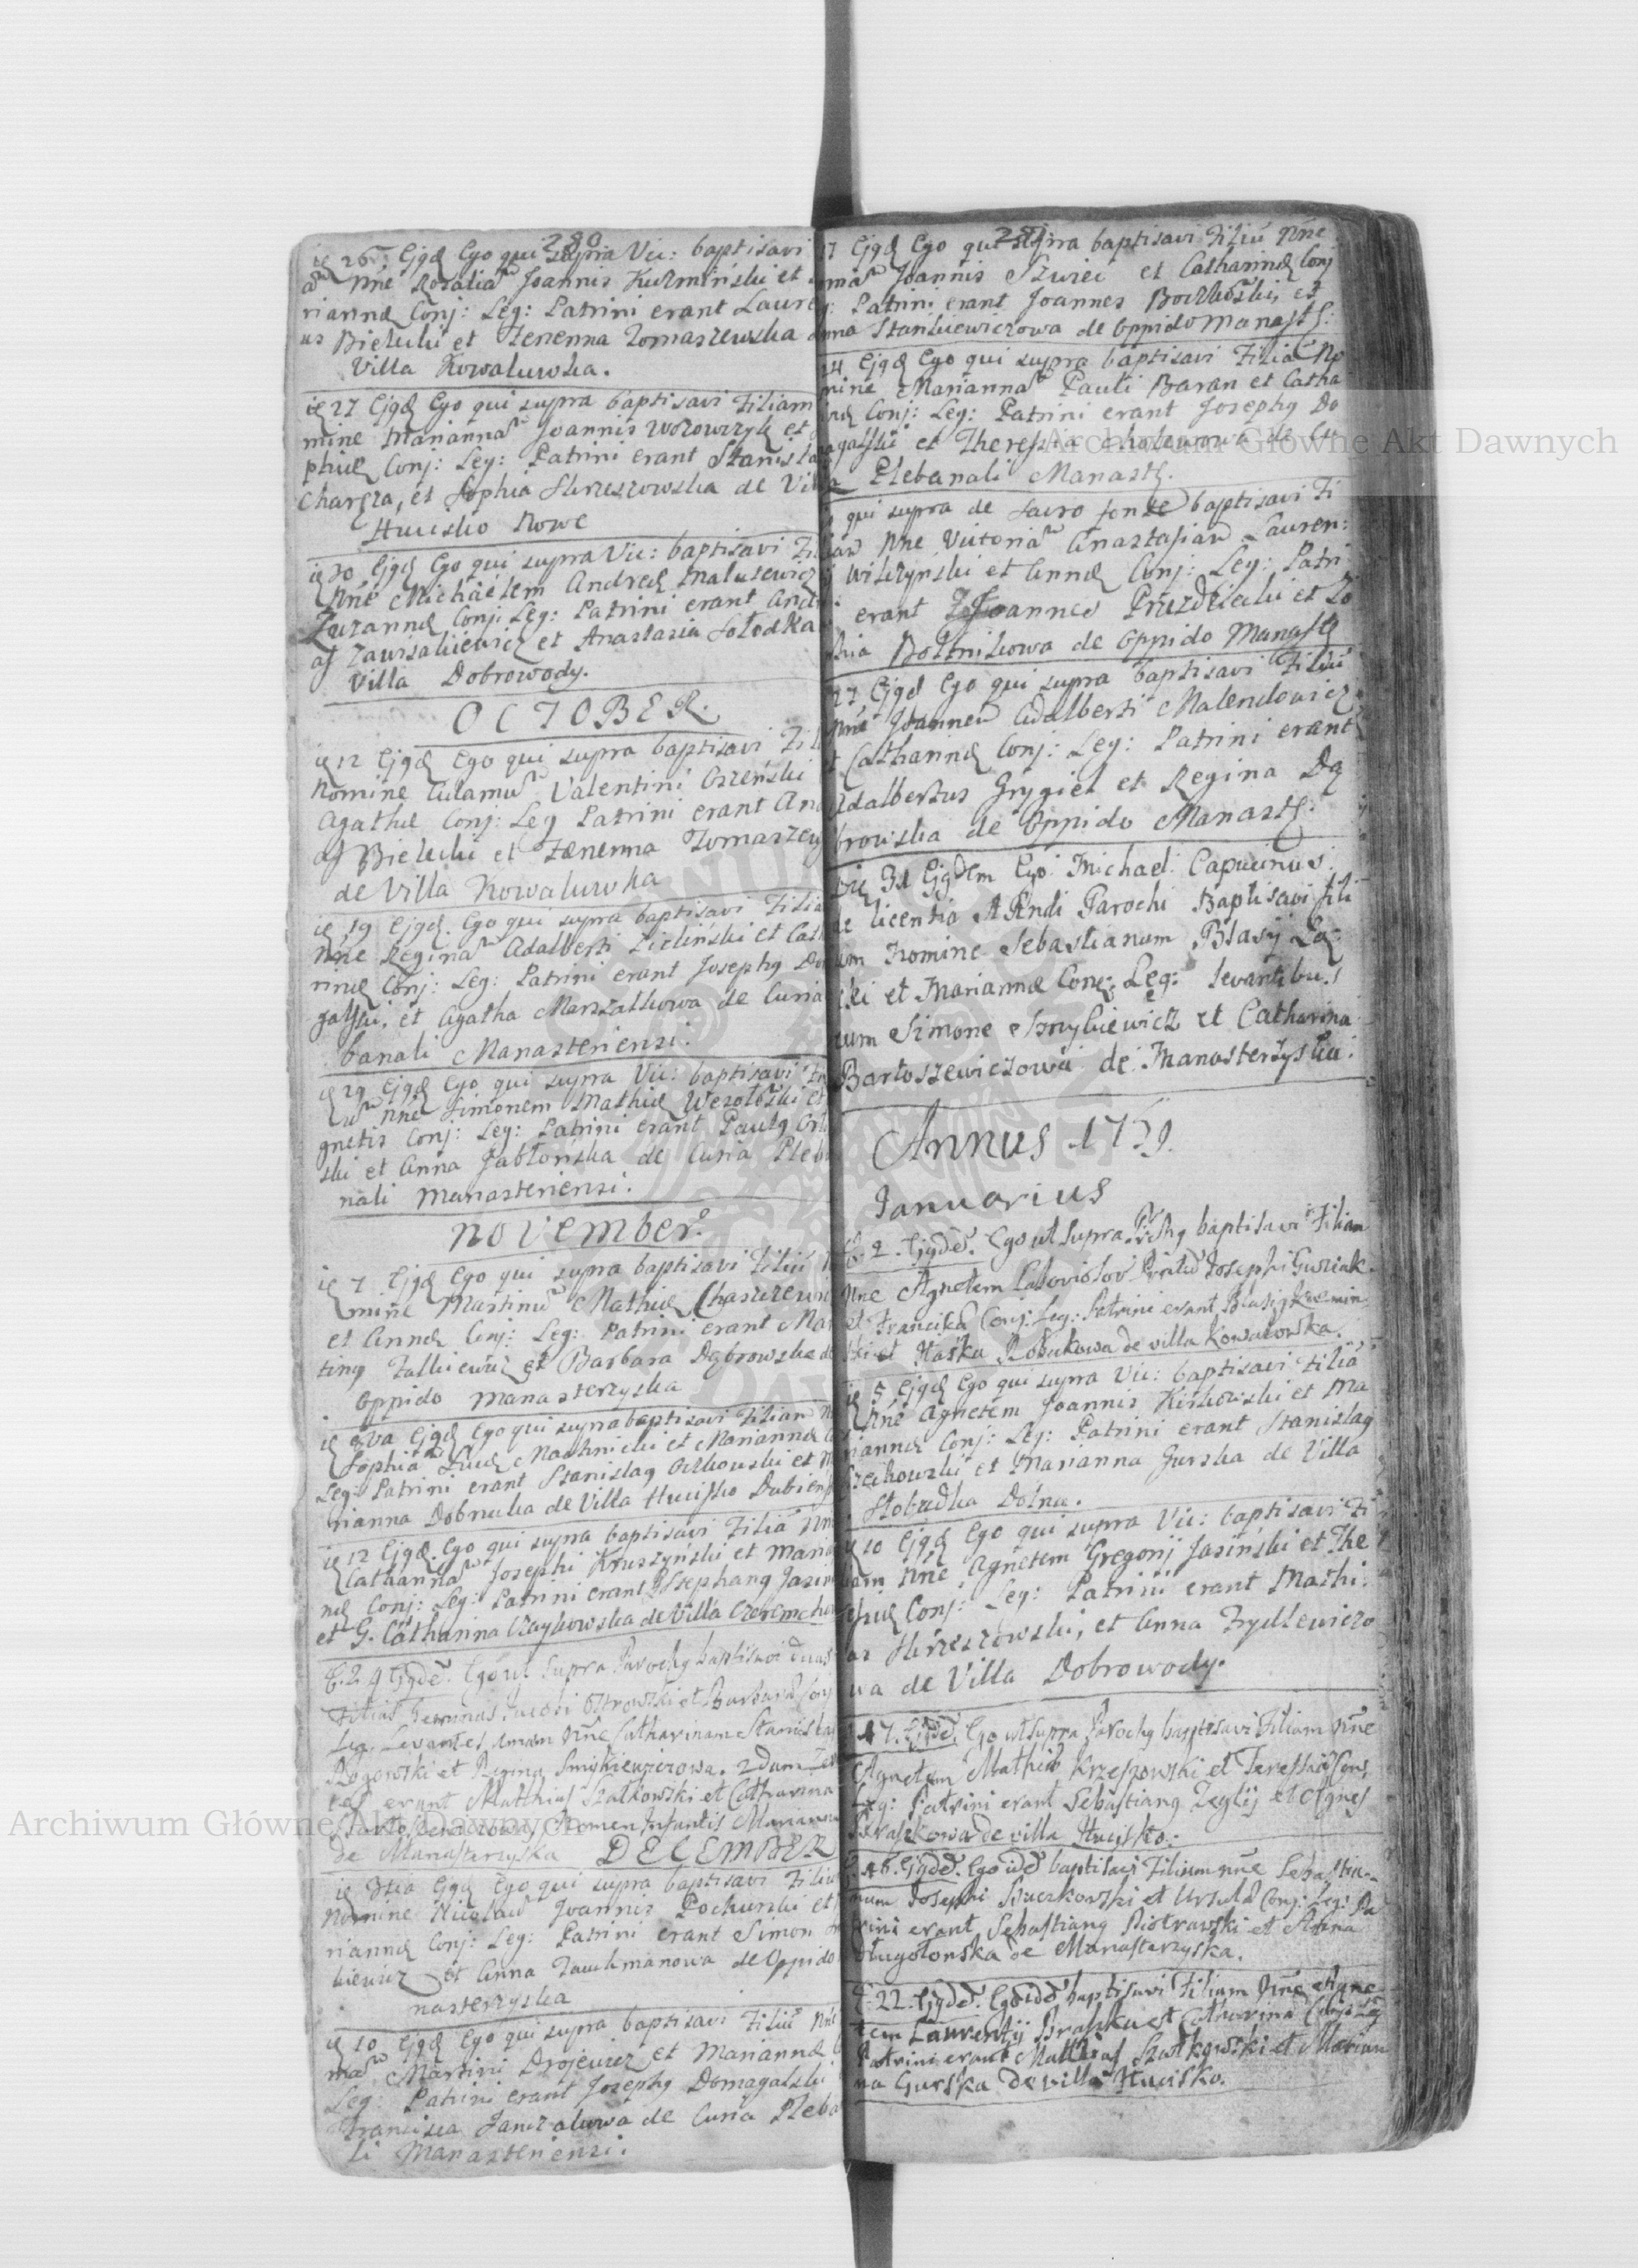 280
ie 26 Ejqd Ego qui supra Vic: baptisavi
a Nne Rosalia Joannis Kuzminski et
riannæ Conj: Leg: Patrini erant Laure
us Bielecki et Zenenna Tomaszewska
Villa Kowaluwka.
ie 27 Ejqd Ego qui supra baptisavi Filiam
mine Marianna Joannis Wozowczyk et
phiæ Conj: Leg: Patrini erant Stanisla
Charga, et Sophia Hrzeszowska de Vil
Hucisko Nowe
ie 30 Ejqd Ego qui supra Vic: baptisavi Fil
Nne Michaelem Andreæ Malusewicz
Zuzannæ Conj: Leg: Patrini erant And
as Zawsakiewicz et Anastasia Solodka
Villa Dobrowody.
OCTOBER.
ie 12 Ejqd Ego qui supra baptisavi Fil
Nomine Adamu Valentini Orzeński
Agathæ Conj: Leg Patrini erant And
as Bielecki et Zenenna Tomaszew
de Villa Kowaluwka
ie 19 Ejqd. Ego qui supra baptisavi Filia
Nne Regina Adalberti Zieliński et Cath
rinæ Conj: Leg: Patrini erant Joseph9 Do
galski, et Agatha Marszalkowa de Curia
banali Manasteriensi.
ie 29 Ejqd Ego qui supra Vic: baptisavi Fil
u Nne Simonem Mathiæ Wezolowski et
gnetis Conj: Leg: Patrini erant Paul9 Orl
ski et Anna Jabłońska de Curia Pleb
nali Manasteriensi.
November.
ie 7 Ejqd Ego qui supra baptisavi Filiu
mine Martinu Mathiæ Chaszczewi
et Annæ Conj: Leg: Patrini erant Mar
tin9 Falkiewicz et Barbara Dąbrowska de
Oppido Manasterzyska
ie 8va Ejqd Ego qui supra baptisavi Filiam N
Sophia Lucæ Machnicki et Mariannæ
Leg: Patrini erant Stanislag Orlkowski et M
rianna Dobrucka de Villa Hucisko Dubien
ie 12 Ejqd. Ego qui supra baptisavi Filia Nn
Cathanna Josephi Kruszyński et Maria
næ Conj: Leg: Patrini erant Stephang Jasin
et G. Catharina Czaykowska de Villa Czeremcho
D. 24 Ejqde. Ego ut supra Parochg baptisavi duas
Filias Geminas Jacobi Ostrowski et Barbaræ Conj
Leg. Levantes, unam Nne Catharinam Stanisla
Rogowski et Regina Smykiewiczowa. 2dam Le
tes erant Matthias Szałkowski et Catharina
Bartoszewiczowa Nomen Infantis Marianna
de Manasterzyska DECEMBER
ie 3tia Ejqd Ego qui supra baptisavi Filiu
Nomine Nicolau Joannis Pochurski et
riannæ Conj: Leg: Patrini erant Simon
kiewicz et Anna Jauchmanowa de Oppido
nasterzyska
ie 10 Ejqd Ego qui supra baptisavi Filiu Nne
ma Martini Drojewicz et Mariannæ
Leg: Patrini erant Joseph9 Domagalski
Francisca Janczakowa de Curia Pleba
li Manasteriensi.
281
17 Ejqd Ego qui supra baptisavi Filiu Nne
ma Joannis Szwiec et Catharinæ Conj
Patrini erant Joannes Boczkowski, et
nna Stankiewiczowa de Oppido Manast:
24 Ejqd Ego qui supra baptisavi Filia No
mine Marianna Pauli Baran et Catha
inæ Conj: Leg: Patrini erant Joseph9 Do
agalski et Theressia Cholewowa de Cu
a Plebanali Manast.
qui supra de Sacro fonte baptisavi Fi
iam Nne Victoria Anastasiam Lauren:
j Wilczynski et Annæ Conj: Leg: Patri
erant Joannes Przezdziecki et Zo
hia Boltnikowa de Oppido Manast
27 Ejqd Ego qui supra baptisavi Filiu
Nne Joannem Adalberti Malendowicz
t Catharinæ Conj: Leg: Patrini erant
Adalbertus Grygiel et Regina Dą
browska de Oppido Manast.
Die 31 Ejqdem Ego Michael Capucinus
de licentia A Rndi Parochi Baptisavi fili
um Nomine Sebastianum Blasij La
ski et Mariannæ Conj: Leg: levantibus
cum Simone Smykiewicz et Catharina
Bartoszewiczowa de Manasterzyska.
Annus 1779.
Januarius
D. 2. Ejqde. Ego ut supra Parchg baptisavi Filiam
Nne Agnetem Laborioso Josephi Guziak
et Francicæ Conj: Leg: Patrini erant Blasig Kuzmin
ski et Haska Robukowa de villa Kowalowka.
ie 5 Ejqd Ego qui supra Vic: baptisavi Filia
Nne Agnetem Joannis Kiskowski et Ma
riannæ Conj: Leg: Patrini erant Stanislag
Czeikowski et Marianna Gurska de Villa
Slobudka Dolna.
ie 10 Ejqd Ego qui supra Vic: baptisavi Fi
liam Nne Agnetem Gregorij Jasiński et The
resiæ Conj: Leg: Patrini erant Mathi:
as Hrzeszowski, et Anna Frydlewiczo
wa de Villa Dobrowody.
17. Ejqde. Ego ut supra Parochg baptisavi Filiam Nne
Agnetem Mathiæ Krzeszowski et Teressiæ Conj.
Leg: Patrini erant Sebastiang Zeglij et Agnes
Baraszkowa de villa Hucisko.
D. 16. Ejqde. Ego ide baptisavi Filium nne Sebastia-
num Josephi Buczkowski et Ursulæ Conj: Leg: Pa
trini erant Sebastiang Piotrowski et Anna
Długołońska de Manasterzyska.
D. 22. Ejqde. Ego ide baptisavi Filiam Nne Agne
tem Laurentij Braszka et Catharina Conj: Leg
Patrini erant Mathias Szałkowski et Marian
na Gurska de villa Hucisko.
Archiwum Główne Akt Dawnych
Archiwum Główne Akt Dawnych